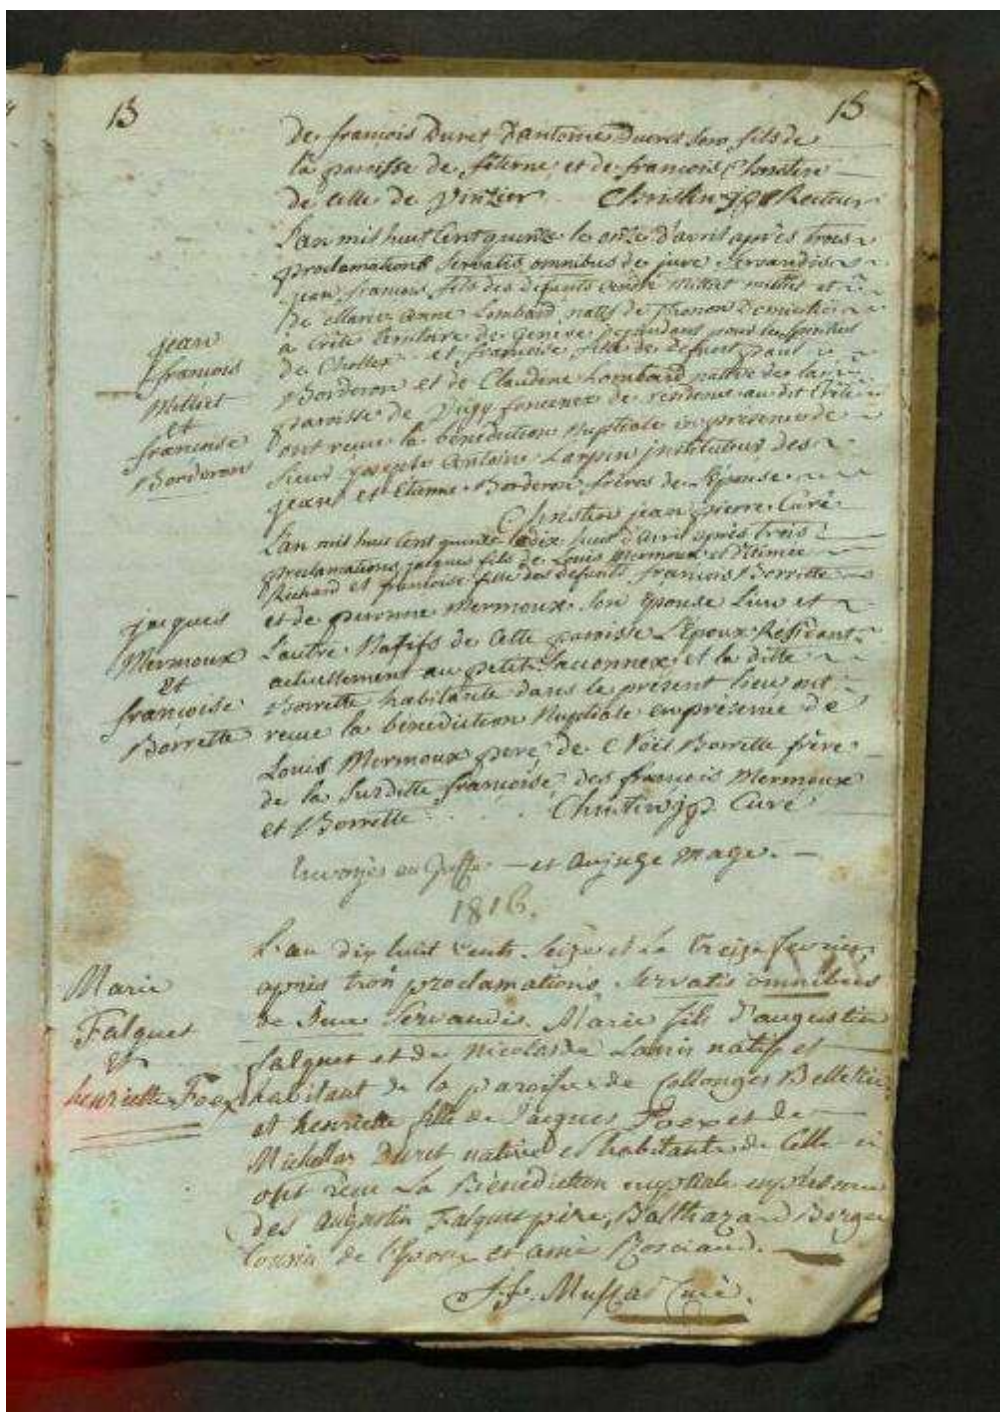 13 15
de françois Duret d'antoine Duret son fils de
la paroisse de féterne, et de françois Christin
de celle de Vinzier Christin jp Recteur
L'an mil huit cent quinze le onze d'avril après trois
proclamations servatis omnibus de jure servandis
jean françois fils des défunts Milliet et
de Marie Anne Lombard natifs de domiciliés
à Crête territoire de Genève
de Chollex et françoise fille de défunt paul
Borderon et de Claudine Lombard native de la
paroisse de Vigy foncenex de résidence au dit Crête
ont reçue la bénédiction Nuptiale en présence de
Sieur joseph Antoine Larpin instituteur des
jean et Etienne Borderon frères de l'épouse
Christin jean pierre Curé
jean
françois
Milliet
et
francoise
Borderon
L'an mil huit cent quinze le dix huit d'avril après trois
proclamations jacques fils de Louis Mermoux et d'Aimée
Richard et francoise fille des défunts françois Borrette
et de peronne Mermoux son Epouse L'un et
L'autre Natifs de Cette paroisse L'Epoux Résident
actuellement au petit Saconnex et la ditte
Borrette habitante dans le présent lieu ont
reçue la bénédiction Nuptiale en présence de
Louis Mermoux pere, de Noël Borrette frère
de la Susditte françoise, des françois Mermoux
et Borrette . . . . Christin jp Curé
jacques
Mermoux
et
françoise
Borrette
Envoyés au Greffe — et au juge mage. —
1816.
L'an dix huit cents seize et le treize fevrier,
après trois proclamations, servatis omnibus
de Jure Servandis. Marie fils d'augustin
falquet et de Nicolarde Lanis natif et
habitant de la paroisse de Collonges Bellerive
et henriette fille de Jacques Foex et de
Michellaz Duret native et habitante de Celle ci
ont reçu La Bénédiction nuptiale en présence
des Augustin Falquet père, Balthazard Berger
Cousin de l'Epoux et amé Rosciaud. —
J. f. Mussad Curé.
Marie
Falquet
et
henriette Foex